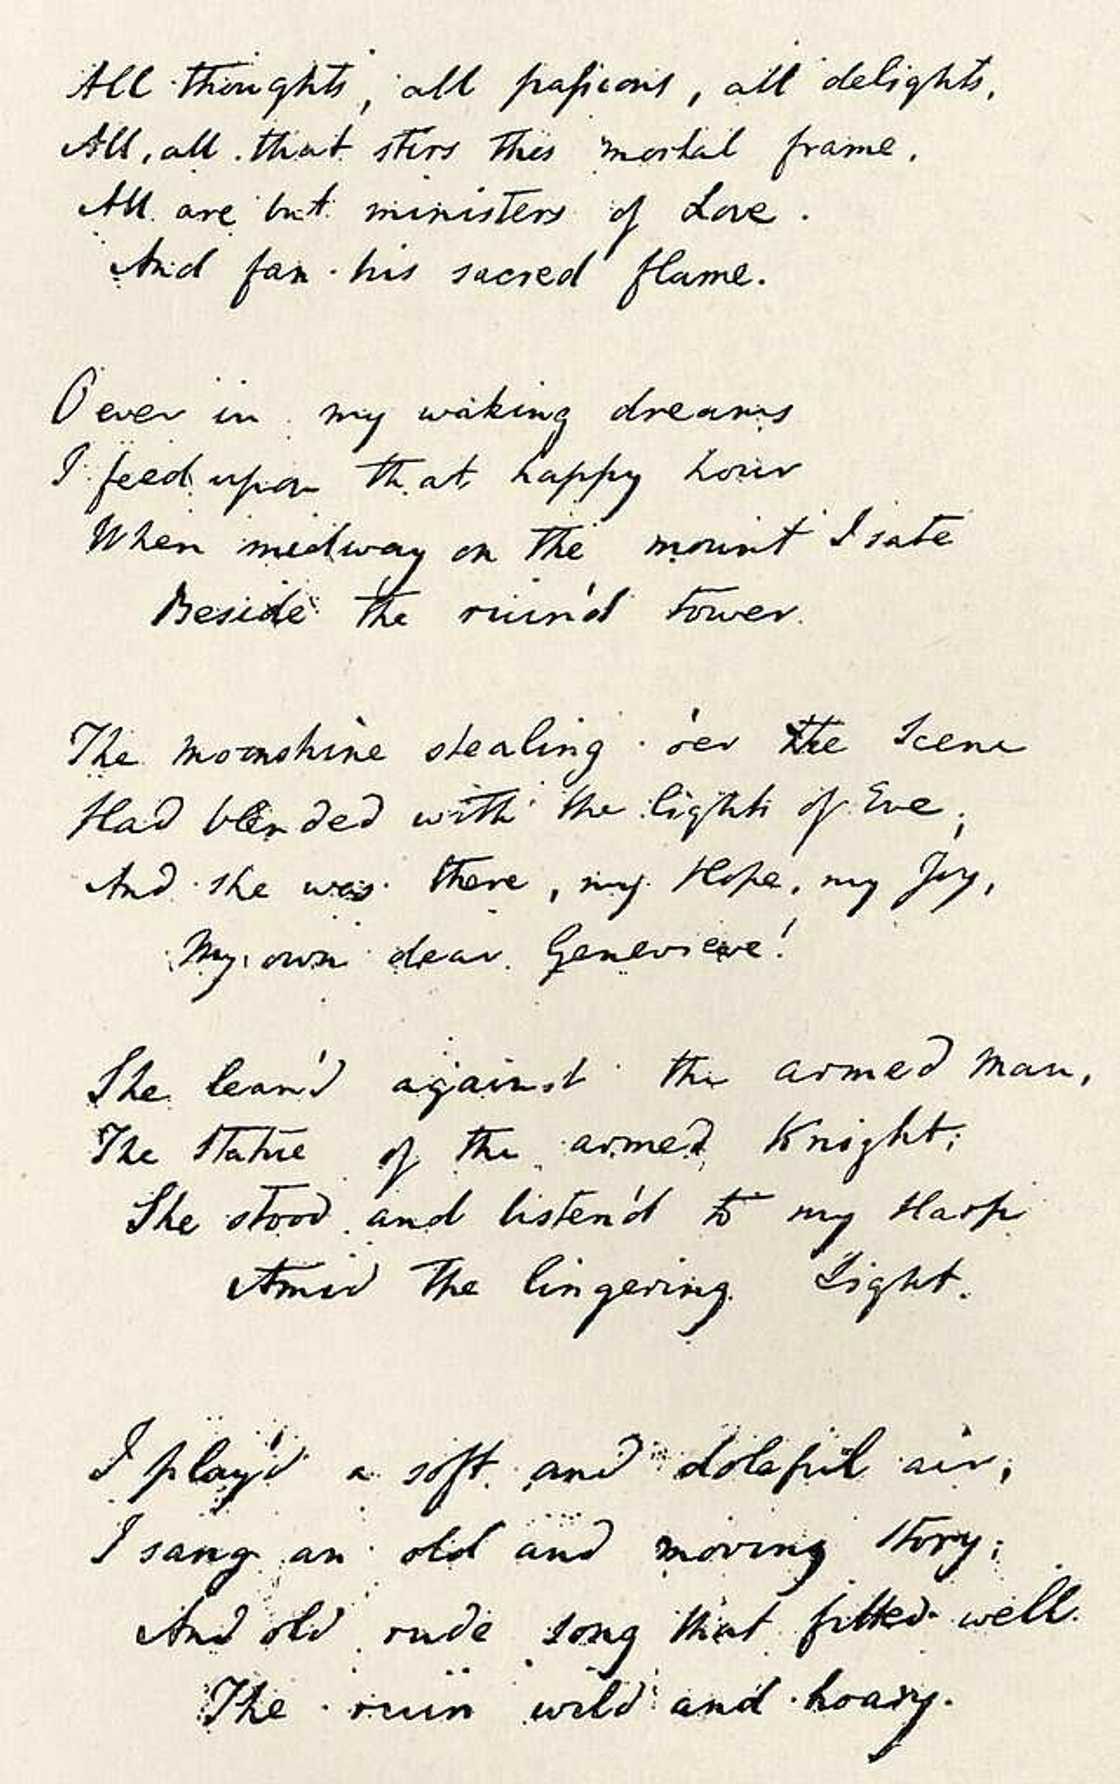 All thoughts, all paſsions, all delights,
All, all that stirs this mortal frame,
All are but ministers of Love.
And fan his sacred flame.
O ever in my waking dreams
I feed upon that happy hour
When midway on the mount I sate
Beside the ruin'd tower.
The Moonshine stealing o'er the Scene
Had blended with the lights of Eve;
And she was there, my Hope, my Joy,
My own dear Genevieve!
She lean'd against the armed Man,
The Statue of the armed Knight;
She stood and listen'd to my Harp
Amid the lingering Light.
I play'd a soft and doleful air,
I sang an old and moving Story;
And old rude song that fitted well
The ruin wild and hoary.